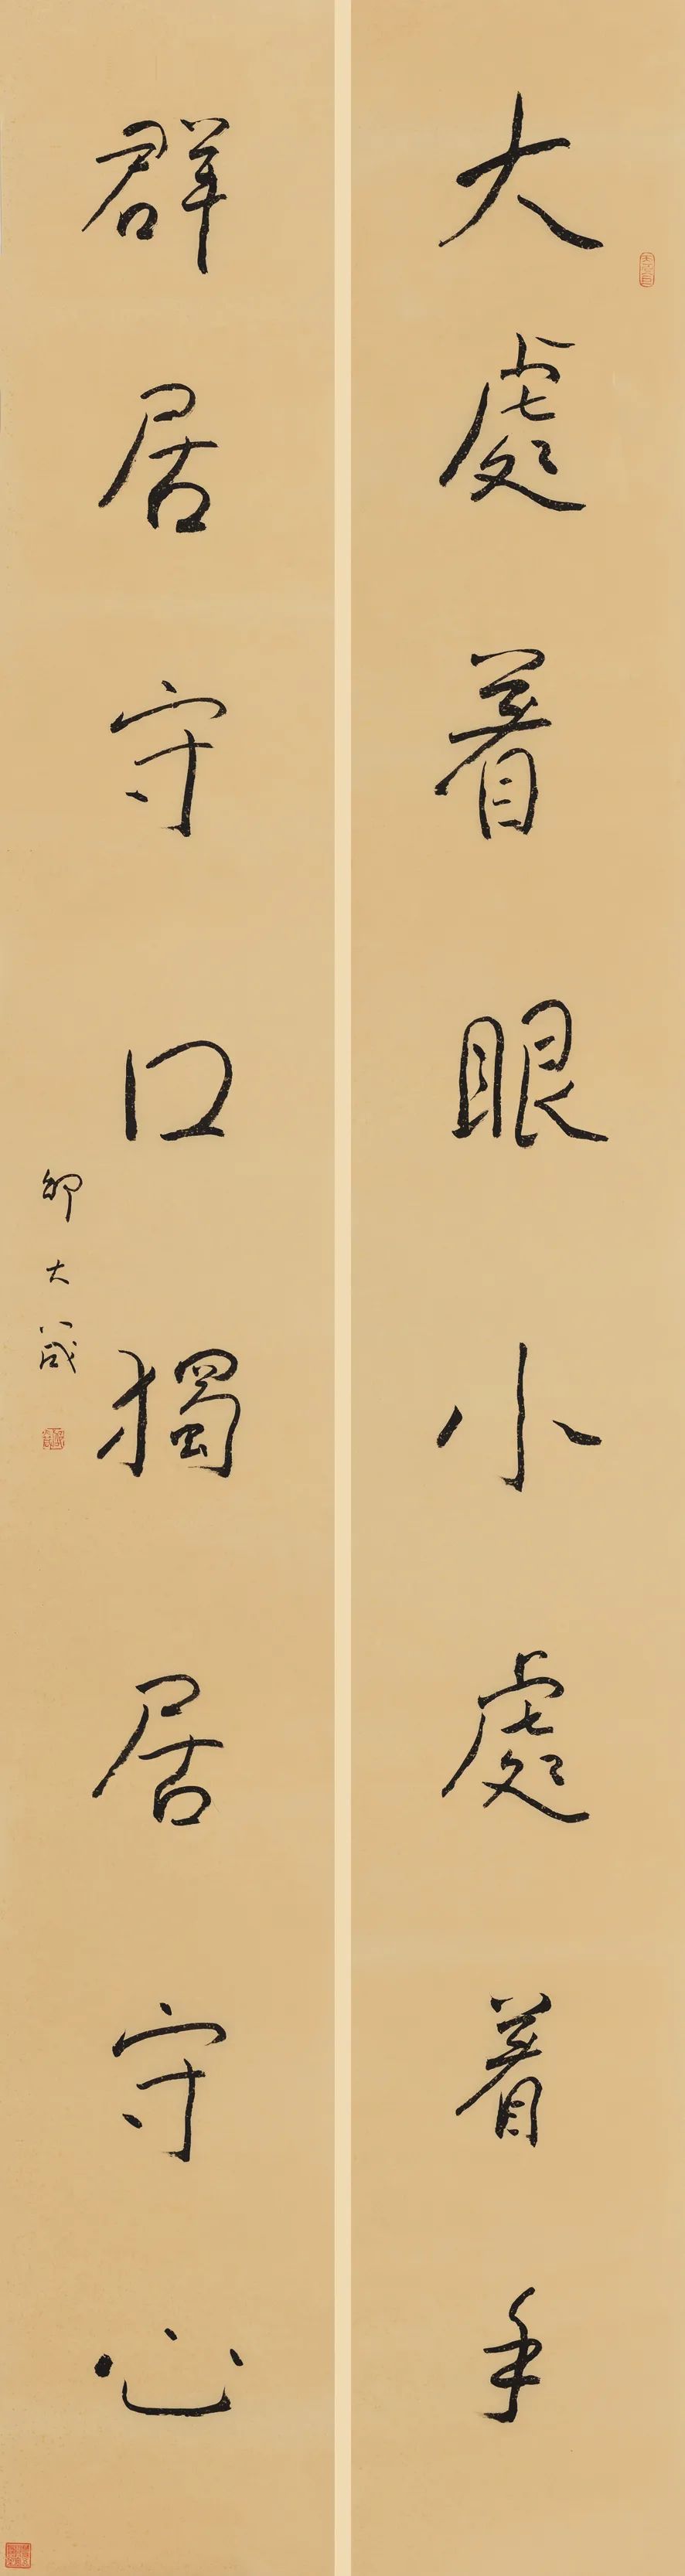 大處着眼小處着手
群居守口獨居守心